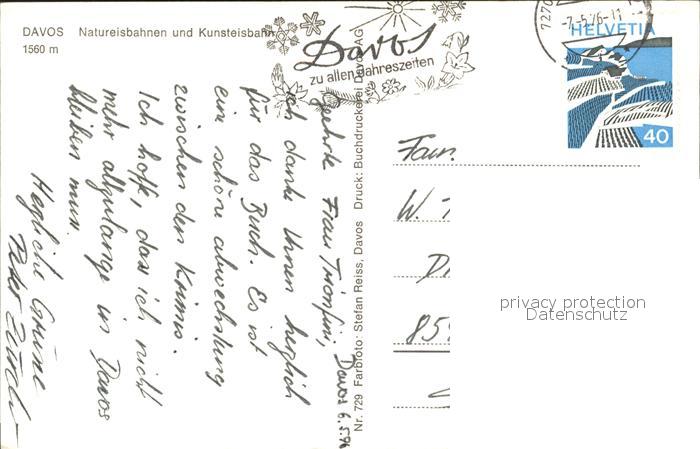 DAVOS Natureisbahnen und Kunsteisbahn
1560 m
Davos
zu allen Jahreszeiten
7270
-7.-5.76-11
HELVETIA
40
Davos 6.5.76
geehrte Frau Trionfini,
ich danke Ihnen herzlich
für das Buch. Es ist
eine schöne abwechslung
zwischen den Krimis.
Ich hoffe, dass ich nicht
mehr allzulange in Davos
bleiben muss.
Herzliche Grüsse
Peter
Nr. 729 Farbfoto: Stefan Reiss, Davos Druck: Buchdruckerei Davos AG
Fam.
W.
D
85
privacy protection
Datenschutz